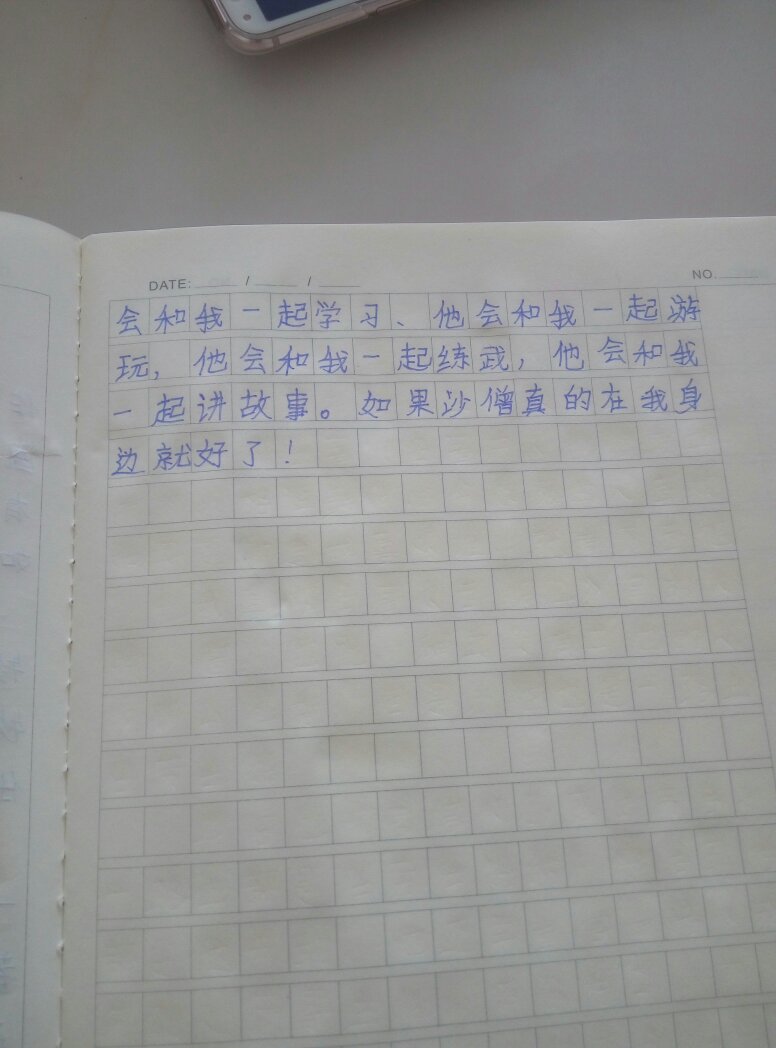 DATE: / /
NO.
会和我一起学习、他会和我一起游
玩，他会和我一起练武，他会和我
一起讲故事。如果沙僧真的在我身
边就好了！